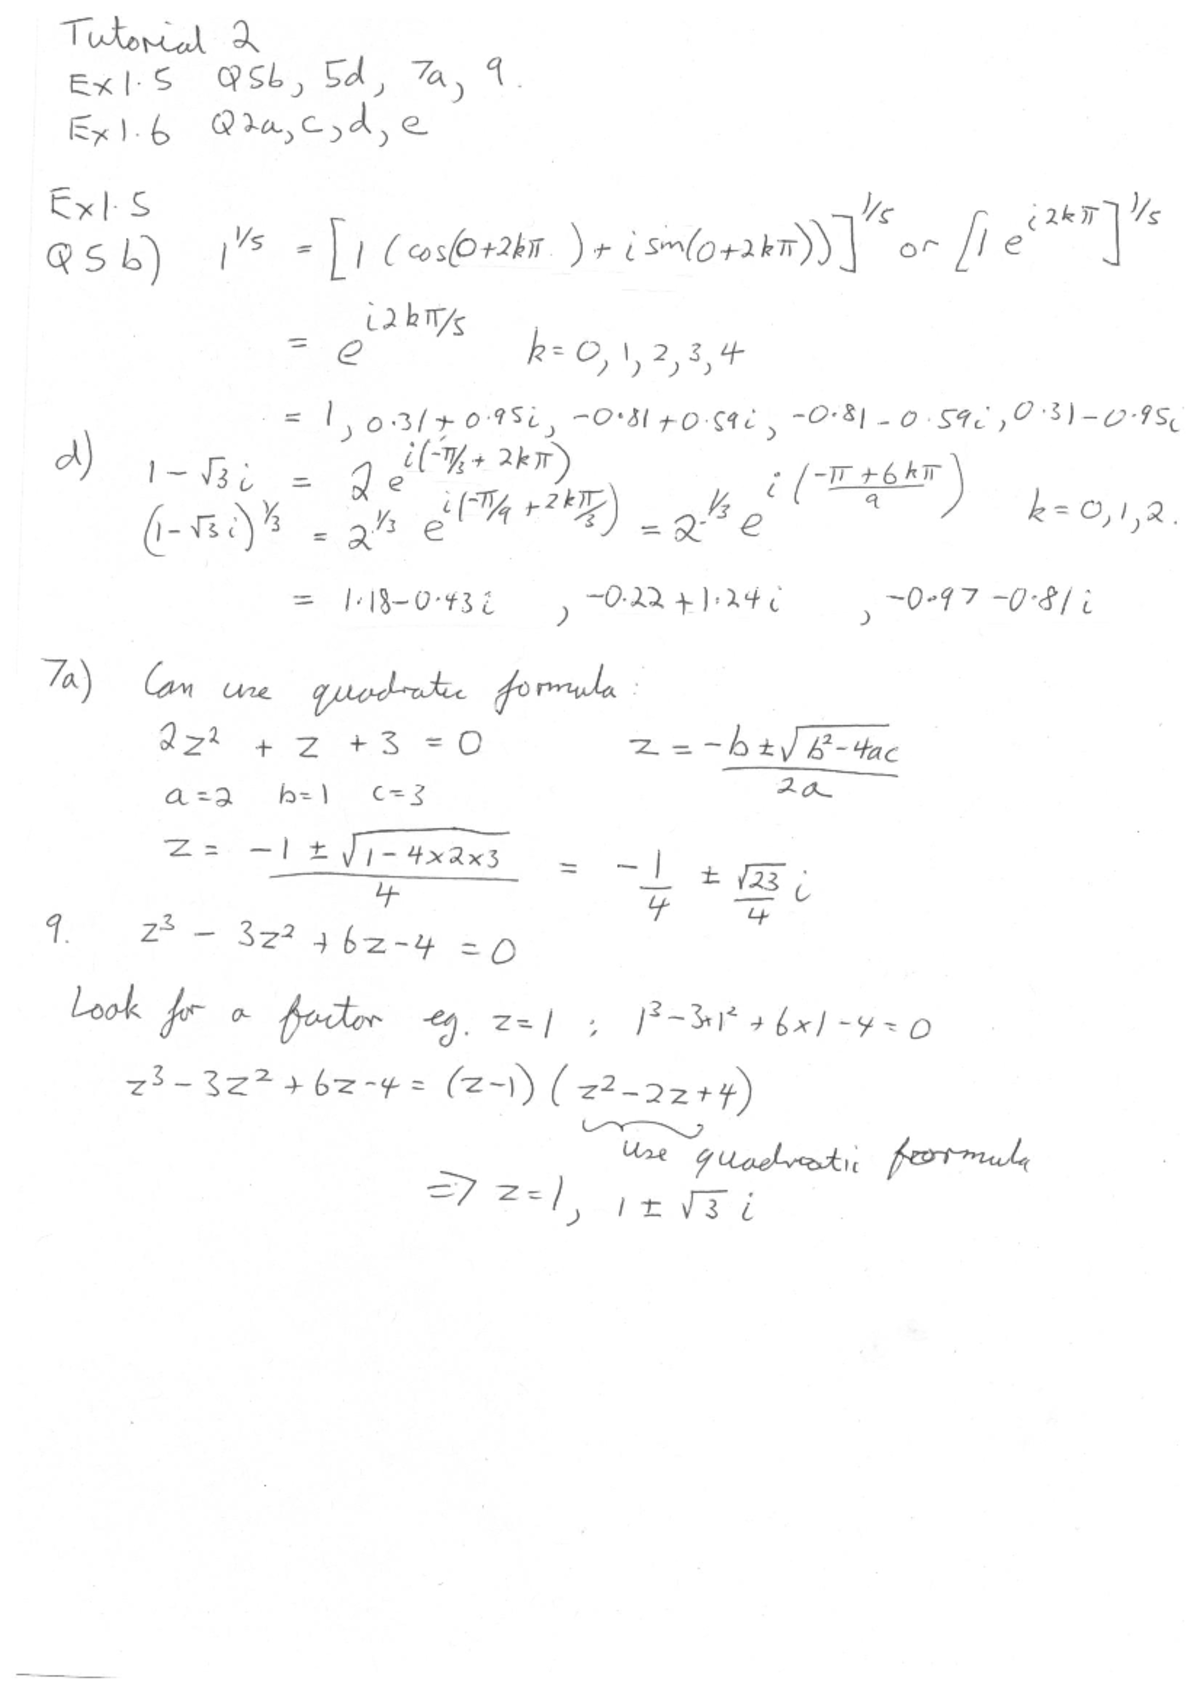 Tutorial 2
Ex1.5 Q5b, 5d, 7a, 9.
Ex1.6 Q2a, c, d, e
Ex1.5
Q5b) 1^{1/5} = [1 (cos(0+2kπ) + i sin(0+2kπ))]^{1/5} or [1 e^{i2kπ}]^{1/5}
= e^{i2kπ/5} k=0, 1, 2, 3, 4
= 1, 0.31+0.95i, -0.81+0.59i, -0.81-0.59i, 0.31-0.95i
d) 1-√3 i = 2 e^{i(-π/3 + 2kπ)}
(1-√3 i)^{1/3} = 2^{1/3} e^{i(-π/9 + 2kπ/3)} = 2^{1/3} e^{i(\frac{-π+6kπ}{9})} k=0,1,2.
= 1.18-0.43i , -0.22+1.24i , -0.97-0.81i
7a) Can use quadratic formula:
2z² + z + 3 = 0 z = \frac{-b±√(b²-4ac)}{2a}
a=2 b=1 c=3
z = \frac{-1 ± √(1-4×2×3)}{4} = -\frac{1}{4} ± \frac{√23}{4} i
9. z³ - 3z² + 6z-4 = 0
Look for a factor eg. z=1 ; 1³-3×1²+6×1-4=0
z³-3z²+6z-4 = (z-1)(z²-2z+4)
use quadratic formula
⇒ z=1, 1±√3 i